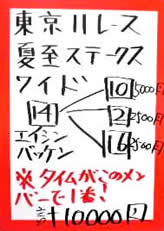 東京11レース
夏至ステークス
ワイド 10 5000円
14 2 2500円
エイシン
バッケン 16 2500円
※タイムがこのメン
バーで1番!
計10000円